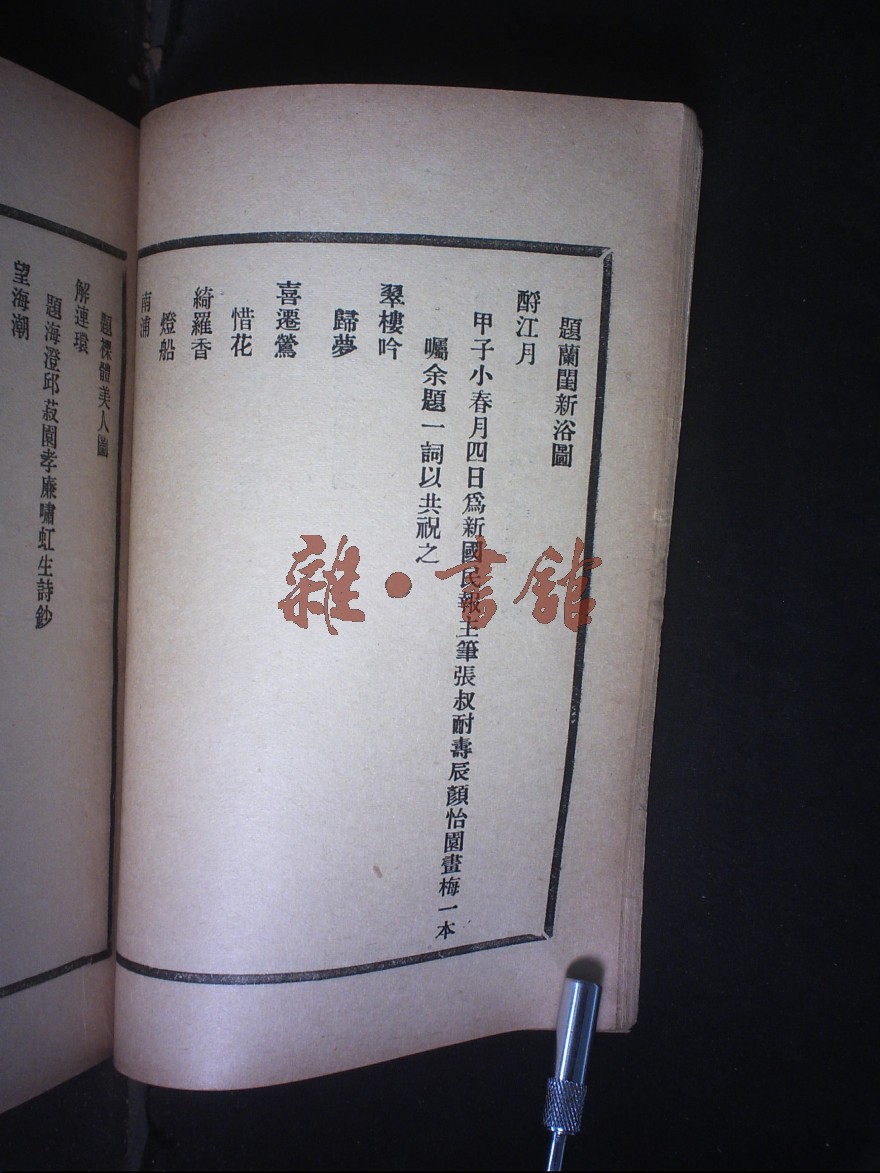 題蘭閨新浴圖
酹江月
甲子小春月四日爲新國民報主筆張叔耐壽辰顏怡園畫梅一本
囑余題一詞以共祝之
翠樓吟
歸夢
喜遷鶯
惜花
綺羅香
燈船
南浦
題裸體美人圖
解連環
題海澄邱菽園孝廉嘯虹生詩鈔
望海潮
雜·書館